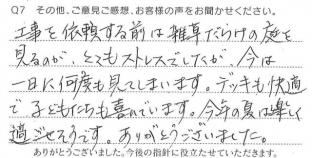 Q7 その他、ご意見ご感想、お客様の声をお聞かせください。
工事を依頼する前は雑草だらけの庭を
見るのが、とてもストレスでしたが、今は
一日に何度も見てしまいます。デッキも快適
で子どもたちも喜んでいます。今年の夏は楽しく
過ごせそうです。ありがとうございました。
ありがとうございました。今後の指針に役立たせていただきます。